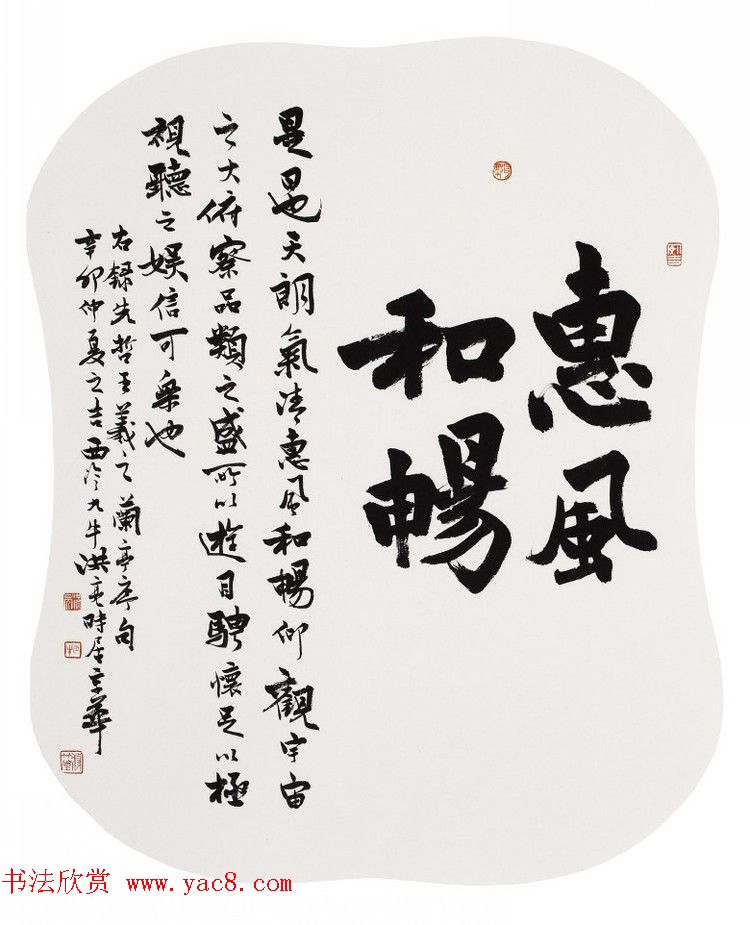 惠風
和暢
是日也天朗氣清惠風和暢仰觀宇宙
之大俯察品類之盛所以遊目騁懷足以極
視聽之娱信可樂也
右録先哲王羲之蘭亭序句
辛卯仲夏之吉西泠九牛洪亮時居京華
书法欣赏 www.yac8.com